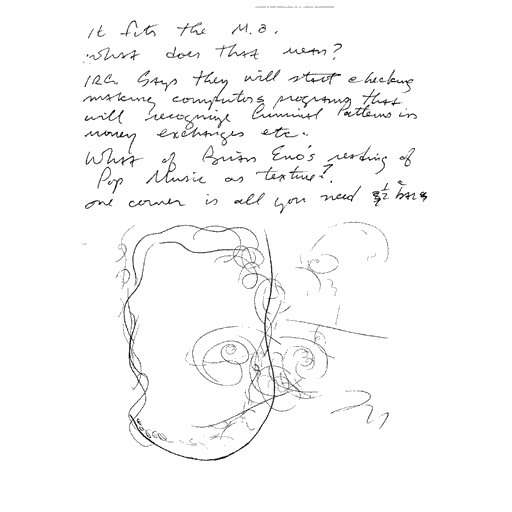 it fits the M.O.
what does that mean?
IRC. Says they will start checking
making computors programs that
will recognize Criminal Patterns in
money exchanges etc.
What of Brian Eno's reading of
Pop Music as texture?
one corner is all you need